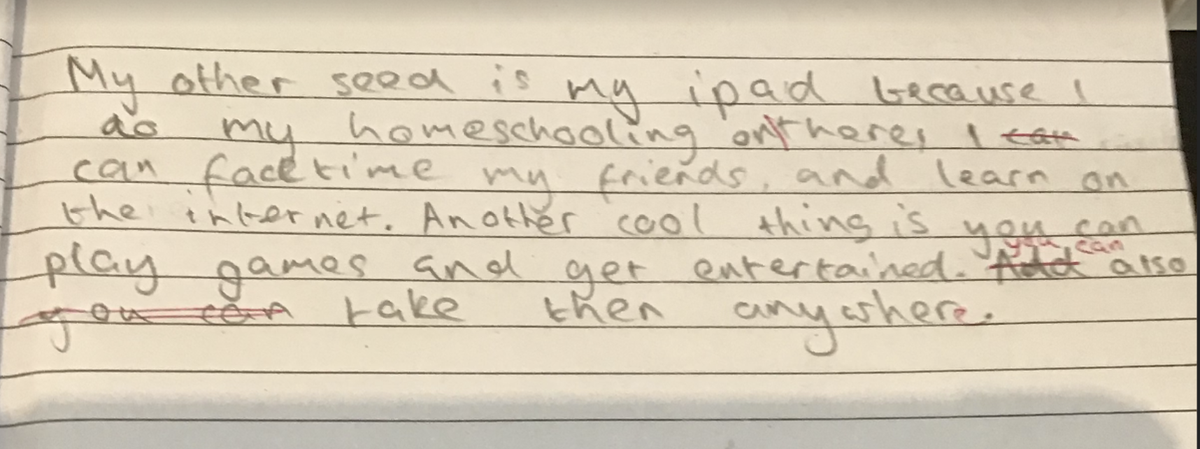 My other seed is my ipad because I
do my homeschooling on there, I can
can facetime my friends, and learn on
the internet. Another cool thing is you can
play games and get entertained. And you can also
you can take then anywhere.